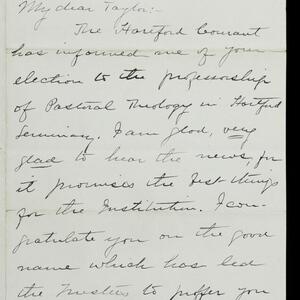 My dear Taylor:-
The Hartford Courant
has informed me of your
election to the professorship
of Pastoral Theology in Hartford
Seminary. I am glad, very
glad to hear the news, for
it promises the best things
for the Institution. I con-
gratulate you on the good
name which has led
the Trustees to proffer you